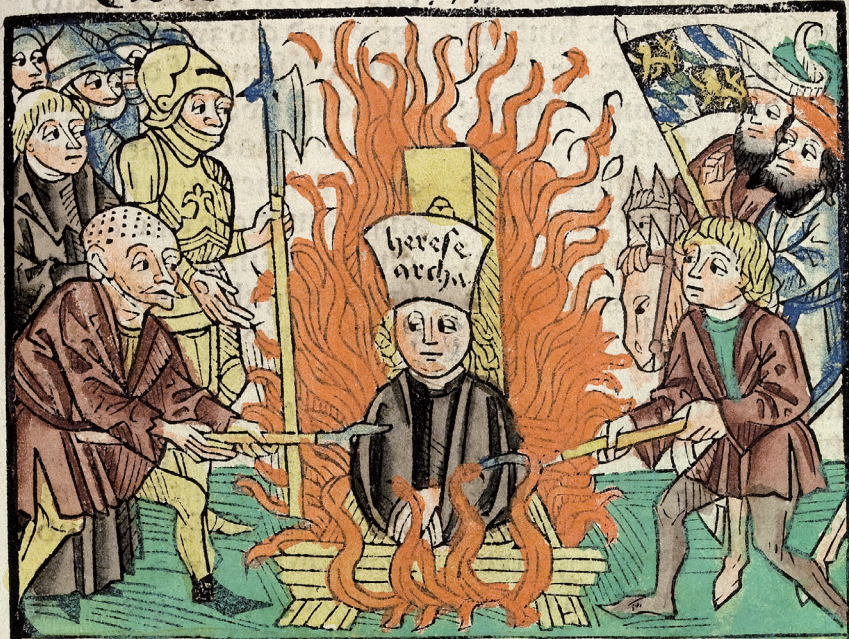 herese
archa.